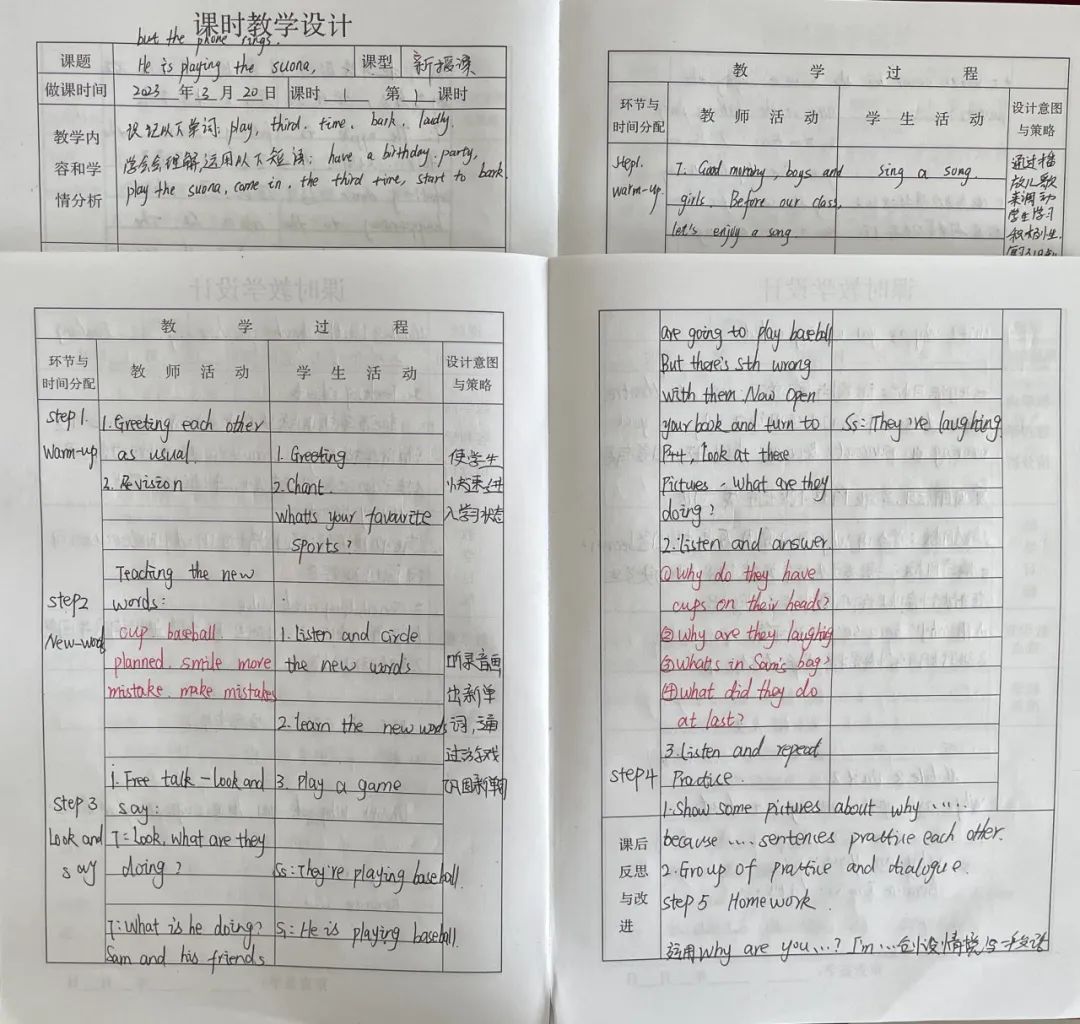 课时教学设计
but the phone rings.
课题 He is playing the suona, 课型 新授课
做课时间 2023 年 3 月 20 日 课时 1 第 1 课时
教学内容和学情分析
识记以下单词: play, third, time, bark, loudly.
学会会理解,运用以下短语: have a birthday party,
play the suona, come in, the third time, start to bark.
教 学 过 程
环节与时间分配 教 师 活 动 学 生 活 动 设计意图与策略
Step1. T. Good morning, boys and sing a song. 通过播
warm-up. girls. Before our class, 放儿歌
let's enjoy a song 来调动
学生学习
积极性.
教 学 过 程
环节与时间分配 教 师 活 动 学 生 活 动 设计意图与策略
step1. 1. Greeting each other
Warm-up as usual. 1. Greeting 使学生
2. Revision 2. Chant. 快速进
what's your favourite 入学习状态
sports?
Teaching the new
step2 words:
New-words cup baseball 1. Listen and circle
planned. smile more the new words 听录音画
mistake. make mistakes 出新单
2. learn the new words 词,通
过游戏
1. Free talk - look and 3. Play a game 巩固新单词
Step 3 say:
Look and T: Look, what are they
say doing? Ss: They're playing baseball.
T: What is he doing? S1: He is playing baseball.
Sam and his friends
are going to play baseball
But there's sth wrong
with them. Now open
your book and turn to Ss: They're laughing
P44, Look at these
Pictures. What are they
doing?
2. Listen and answer.
① Why do they have
cups on their heads?
② Why are they laughing
③ What's in Sam's bag?
④ What did they do
at last?
3. Listen and repeat
step4 Practice.
1. Show some pictures about why ......
课后反思与改进
because .... sentences practice each other.
2. Group of practice and dialogue.
Step 5 Homework.
运用 Why are you...? I'm ... 创设情境,写